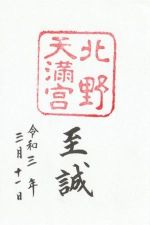 北野
天満宮
至誠
令和三年
三月十一日